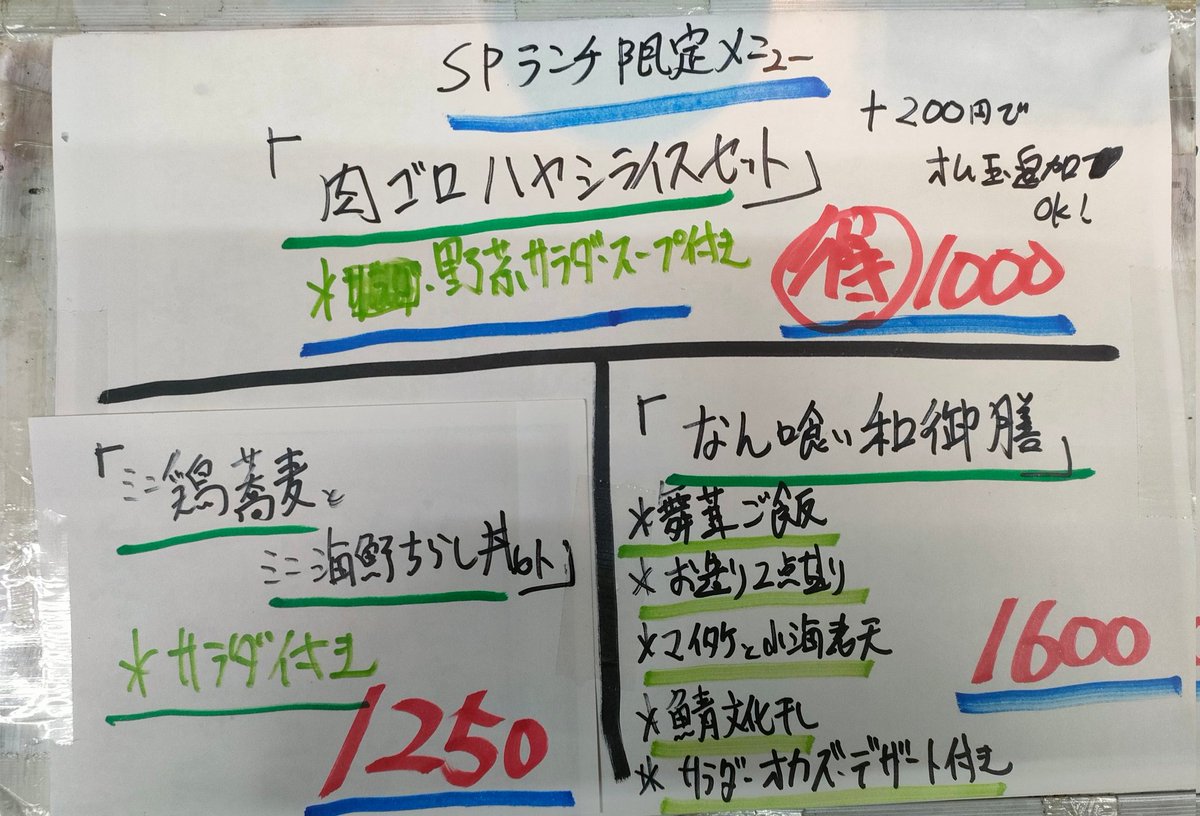 SPランチ限定メニュー
+200円で
オム玉追加
OK!
「肉ゴロハヤシライスセット」
*野菜サラダ・スープ付き
得 1000
「ミニ鶏蕎麦と
ミニ海鮮ちらし丼セット」
*サラダ付き
1250
「なん喰い和御膳」
*舞茸ご飯
*お造り2点盛り
*マイタケと小海老天
*鯖文化干し
*サラダ・オカズ・デザート付き
1600